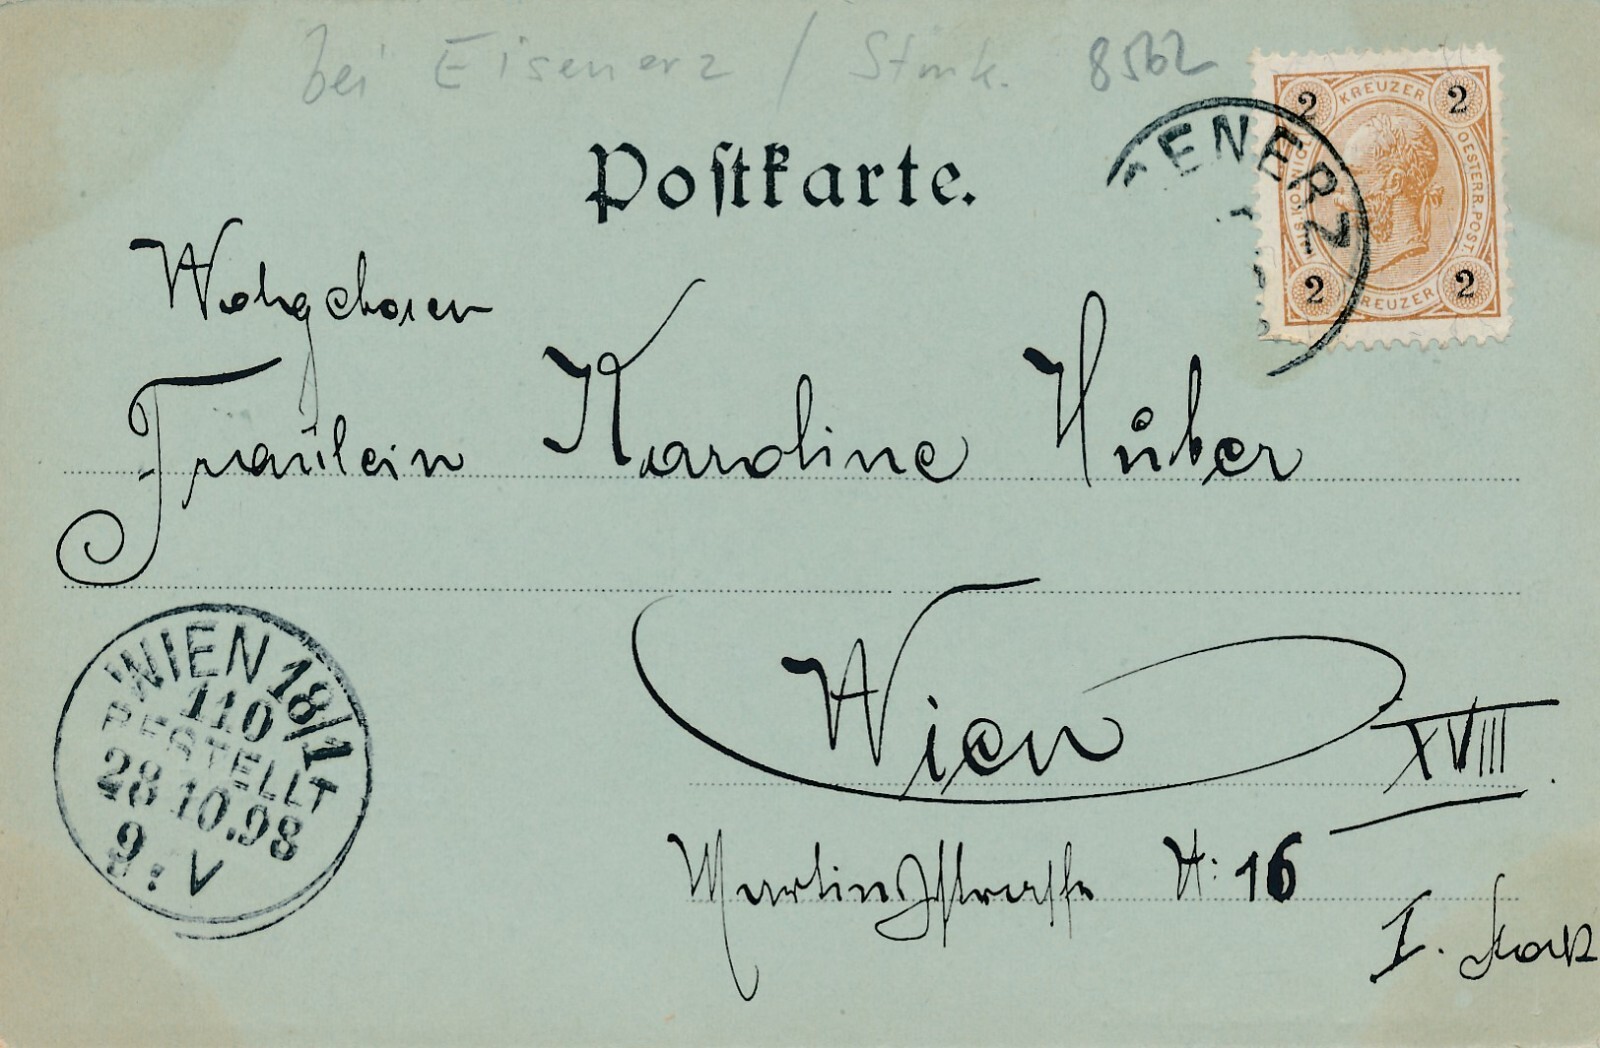 bei Eisenerz / Stmk. 8562
Postkarte.
2 KREUZER 2
OESTERR. POST.
2 KREUZER 2
ENERZ
Wohlgeboren
Fräulein Karoline Huber
Wien XVIII.
Martinsstrasse N: 16
I. Stock
WIEN 18/1
110
BESTELLT
28 10.98
9: V